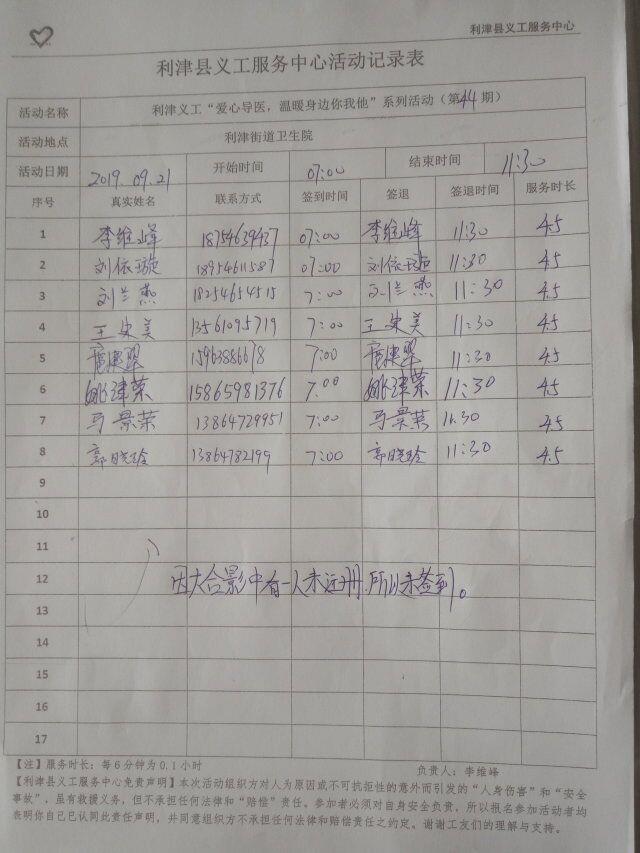 利津县义工服务中心
利津县义工服务中心活动记录表
活动名称 利津义工“爱心导医，温暖身边你我他”系列活动（第44期）
活动地点 利津街道卫生院
活动日期 2019.09.21 开始时间 07:00 结束时间 11:30
序号 真实姓名 联系方式 签到时间 签退 签退时间 服务时长
1 李维峰 18754639437 07:00 李维峰 11:30 4.5
2 刘依璇 18954611587 07:00 刘依璇 11:30 4.5
3 刘兰燕 18254654515 7:00 刘兰燕 11:30 4.5
4 王荣美 13561095719 7:00 王荣美 11:30 4.5
5 7:00 11:30 4.5
6 姚泽荣 15865981376 7:00 姚泽荣 11:30 4.5
7 马景荣 13864729951 7:00 马景荣 11:30 4.5
8 郭晓玲 13864782199 7:00 郭晓玲 11:30 4.5
9
10
11
12 因大合影中有一人未注册，所以未签到。
13
14
15
16
17
【注】服务时长：每6分钟为0.1小时 负责人：李维峰
【利津县义工服务中心免责声明】本次活动组织方对人为原因或不可抗拒性的意外而引发的“人身伤害”和“安全
事故”，虽有救援义务，但不承担任何法律和“赔偿”责任。参加者必须对自身安全负责，所以报名参加活动者均
表明你自己已认同此责任声明，并同意组织方不承担任何法律和赔偿责任之约定。谢谢工友们的理解与支持。